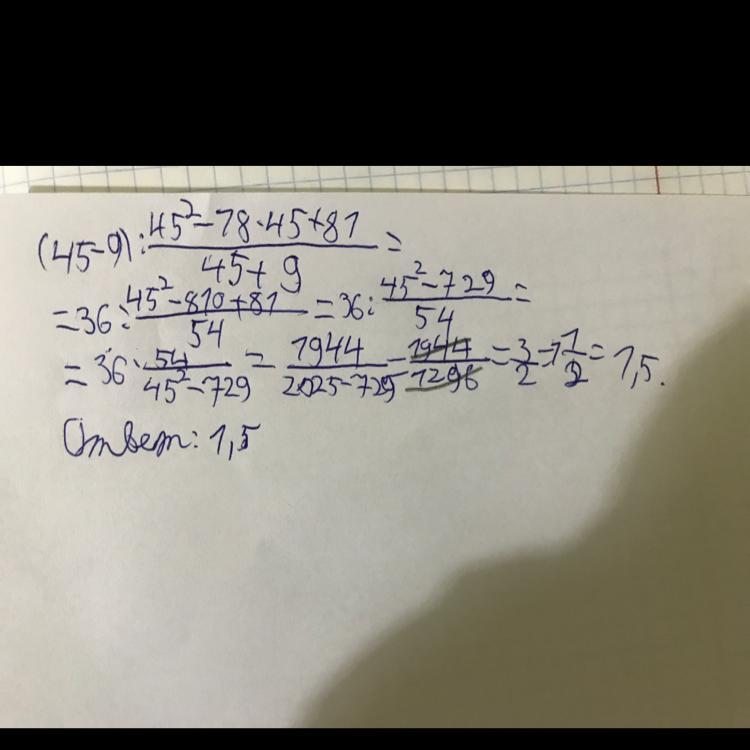 (45-9):\frac{45²-18·45+81}{45+9}=
=36:\frac{45²-810+81}{54}=36:\frac{45²-729}{54}=
=36·\frac{54}{45²-729}=\frac{1944}{2025-729}=\frac{1944}{1296}=\frac{3}{2}=1\frac{1}{2}=1,5.
Ответ: 1,5